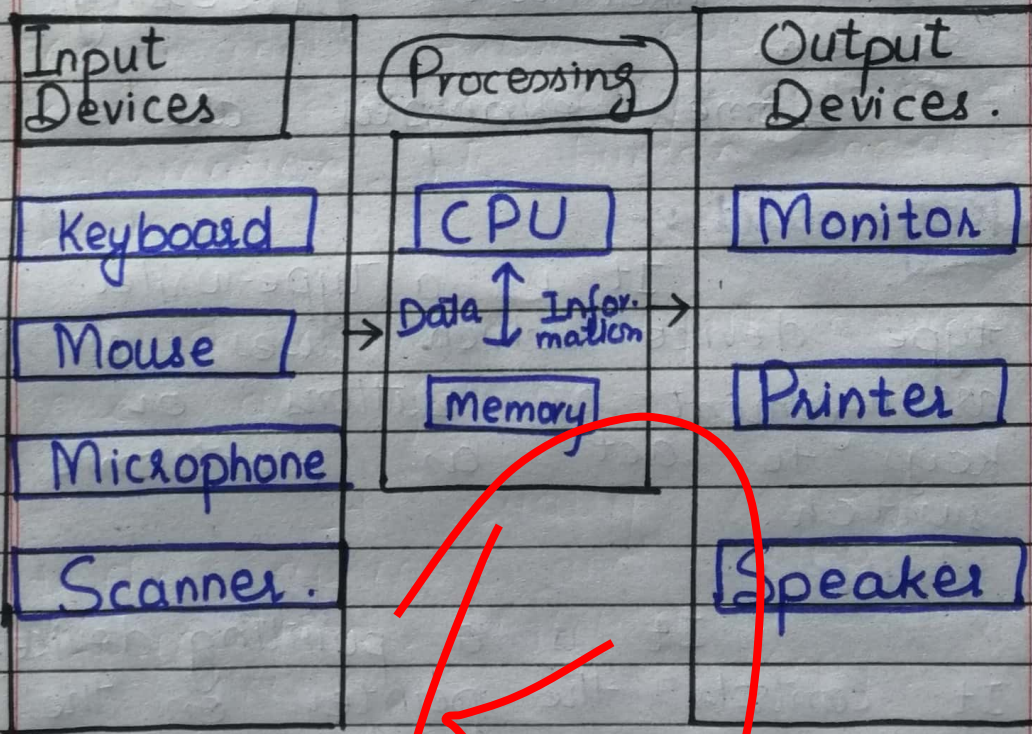 Input
Devices
Keyboard
Mouse
Microphone
Scanner.
Processing
CPU
Data
Infor.
mation
Memory
Output
Devices.
Monitor
Printer
Speaker